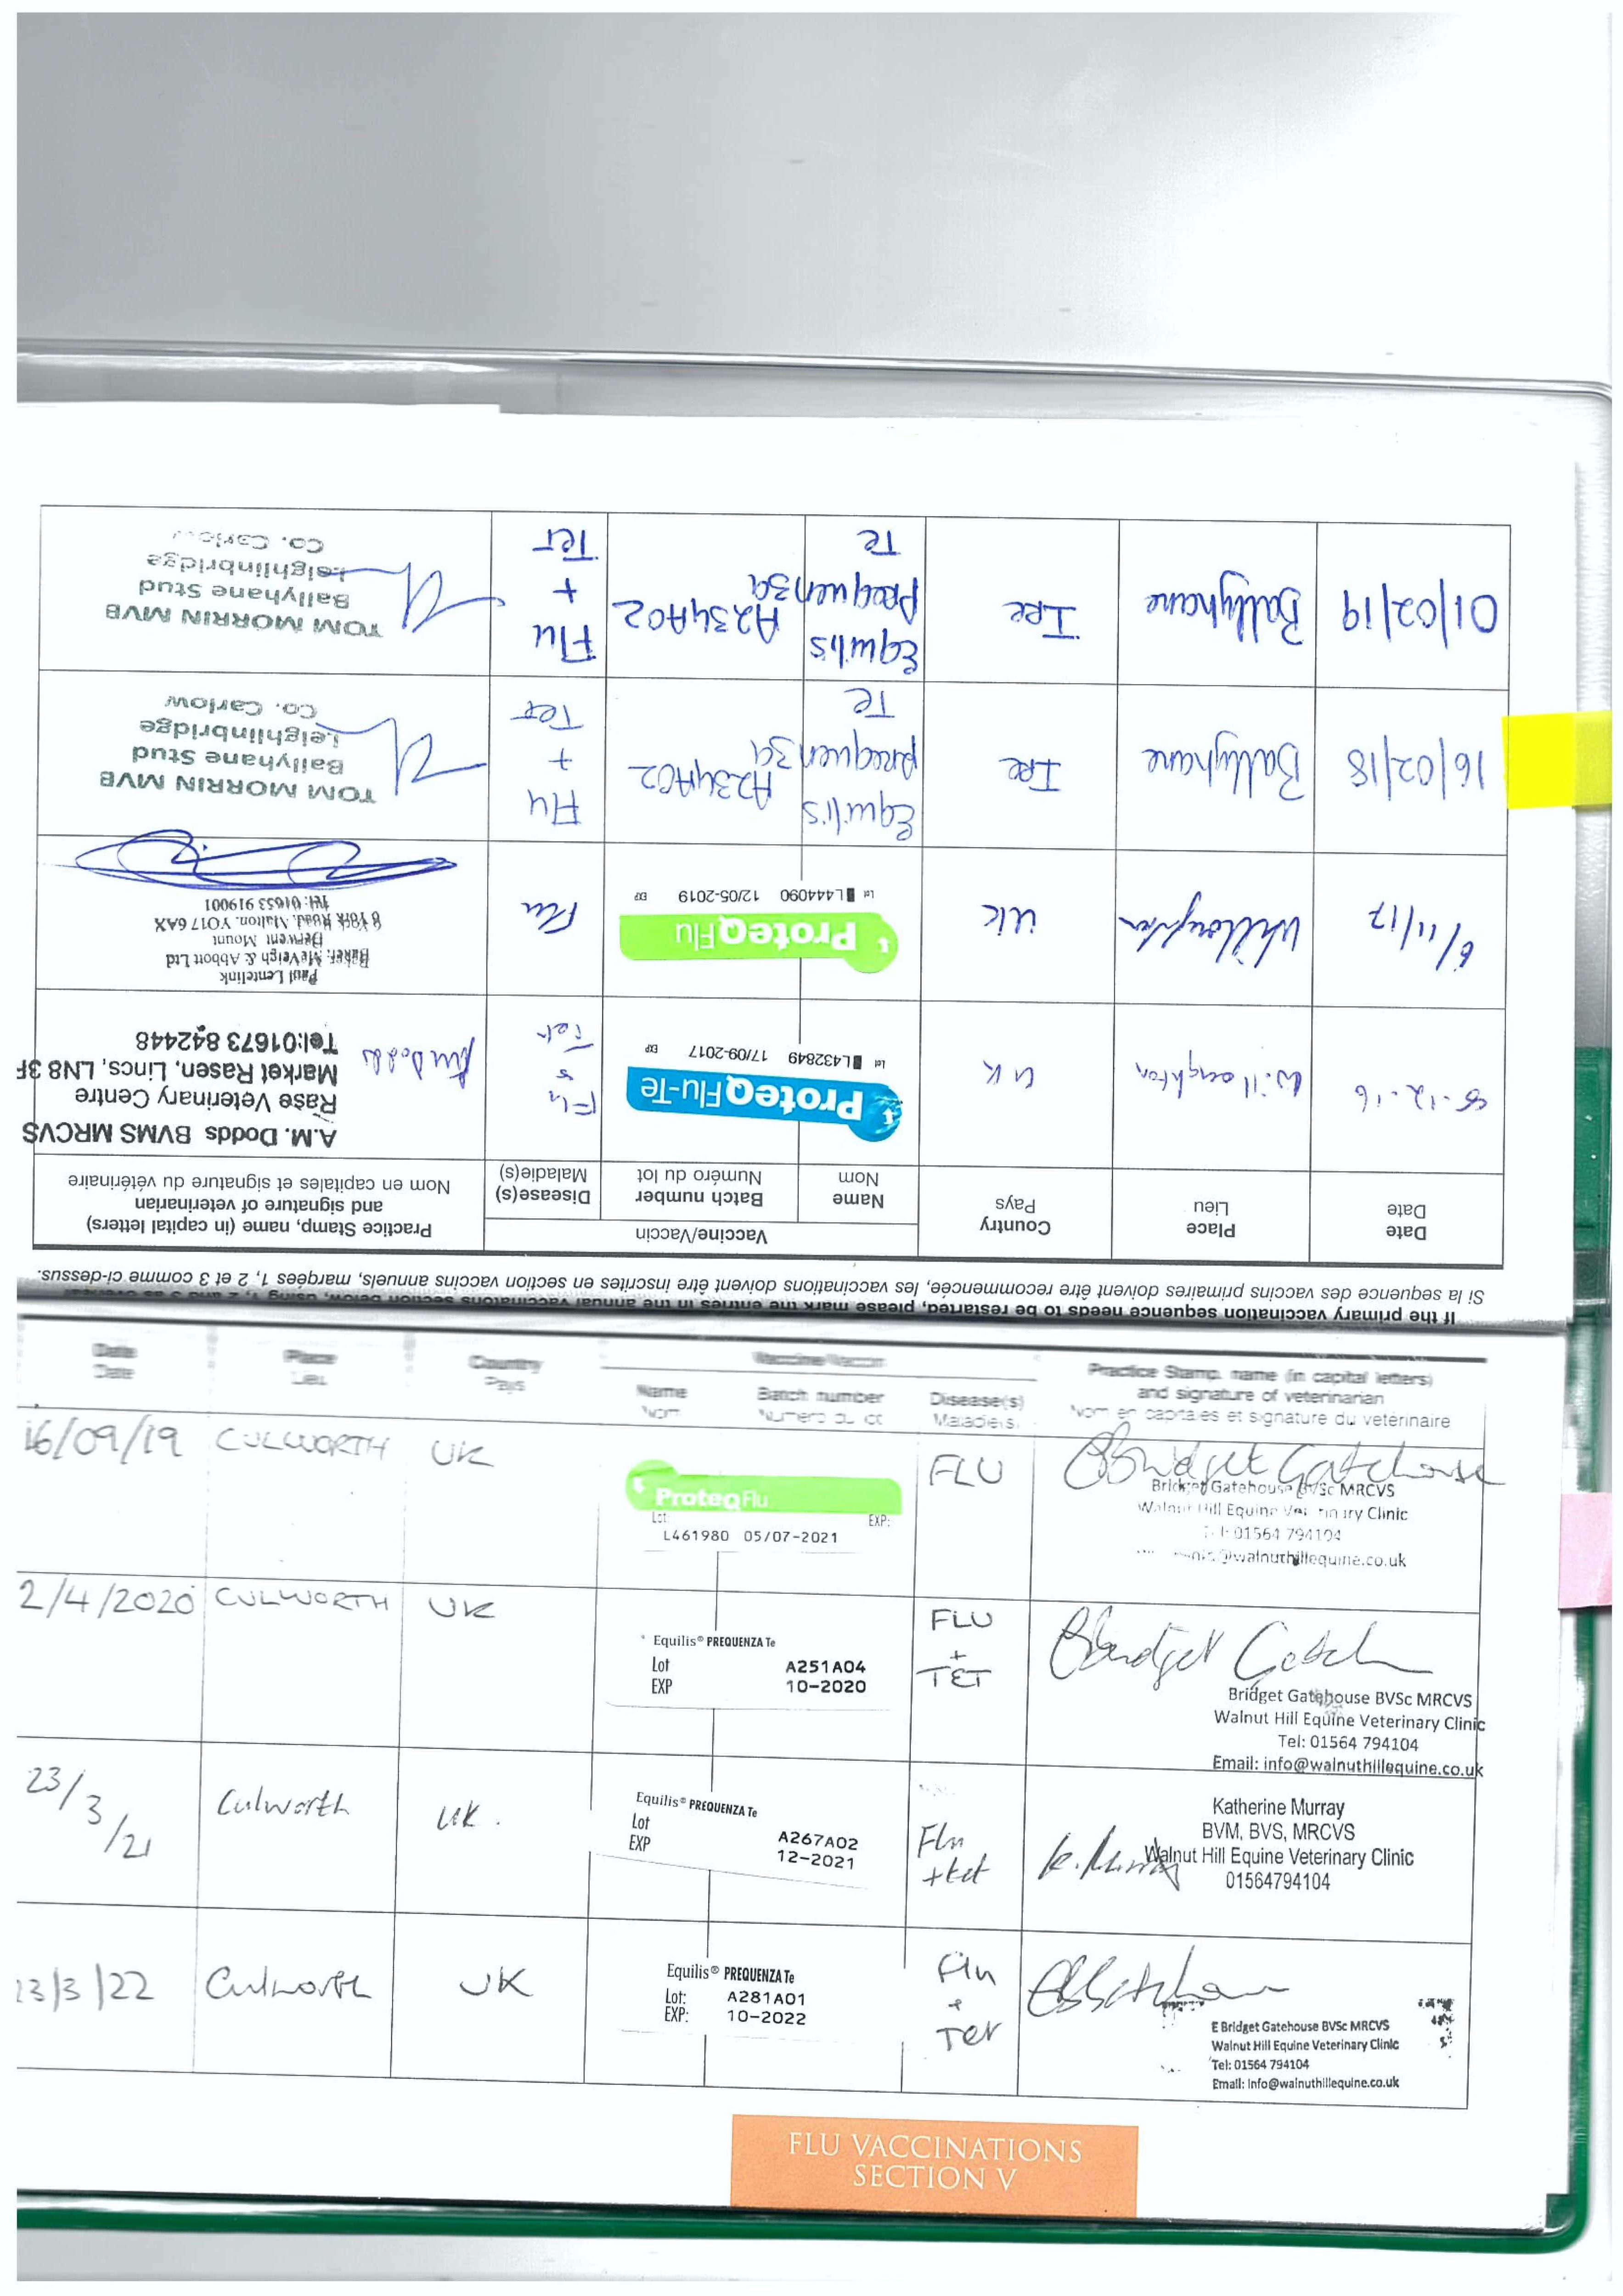 If the primary vaccination sequence needs to be restarted, please mark the entries in the annual vaccinations section below, using 1, 2 and 3 as
Si la sequence des vaccins primaires doivent être recommencée, les vaccinations doivent être inscrites en section vaccins annuels, marqées 1, 2 et 3 comme ci-dessus.
Date
Date
Place
Lieu
Country
Pays
Vaccine/Vaccin
Name
Nom
Batch number
Numéro du lot
Disease(s)
Maladie(s)
Practice Stamp, name (in capital letters)
and signature of veterinarian
Nom en capitales et signature du vétérinaire
8-12-16
Willoughton
UK
ProteqFlu-Te
Lot L432849 17/09-2017 EXP
Flu
&
Tet
A.M. Dodds BVMS MRCVS
Rase Veterinary Centre
Market Rasen, Lincs, LN8 3F
Tel:01673 842448
6/11/17
Willoughton
UK
ProteqFlu
Lot L444090 12/05-2019 EXP
Flu
Paul Lentelink
Baker, McVeigh & Abbott Ltd
Derwent Mount
8 York Road, Malton. YO17 6AX
Tel: 01653 919001
16/02/18
Ballyhane
Ire
Equilis
prequenza
Te
A234A02
Flu
+
Tet
TOM MORRIN MVB
Ballyhane Stud
Leighlinbridge
Co. Carlow
01/02/19
Ballyhane
Ire
Equilis
Prequenza
Te
A234A02
Flu
+
Tet
TOM MORRIN MVB
Ballyhane Stud
Leighlinbridge
Co. Carlow
Date
Date
Place
Lieu
Country
Pays
Vaccine/Vaccin
Name
Nom
Batch number
Numéro du lot
Disease(s)
Maladie(s)
Practice Stamp, name (in capital letters)
and signature of veterinarian
Nom en capitales et signature du vétérinaire
16/09/19
CULWORTH
UK
ProteqFlu
Lot: EXP:
L461980 05/07-2021
FLU
Bridget Gatehouse
Bridget Gatehouse BVSc MRCVS
Walnut Hill Equine Veterinary Clinic
Tel: 01564 794104
@walnuthillequine.co.uk
2/4/2020
CULWORTH
UK
Equilis® PREQUENZA Te
Lot A251A04
EXP 10-2020
FLU
+
TET
Bridget Gatehouse BVSc MRCVS
Walnut Hill Equine Veterinary Clinic
Tel: 01564 794104
Email: info@walnuthillequine.co.uk
23/3/21
Culworth
UK.
Equilis® PREQUENZA Te
Lot A267A02
EXP 12-2021
Flu
+tet
K. Murray
Katherine Murray
BVM, BVS, MRCVS
Walnut Hill Equine Veterinary Clinic
01564794104
23/3/22
Culworth
UK
Equilis® PREQUENZA Te
Lot: A281A01
EXP: 10-2022
Flu
+
Tet
E Bridget Gatehouse BVSc MRCVS
Walnut Hill Equine Veterinary Clinic
Tel: 01564 794104
Email: Info@walnuthillequine.co.uk
FLU VACCINATIONS
SECTION V